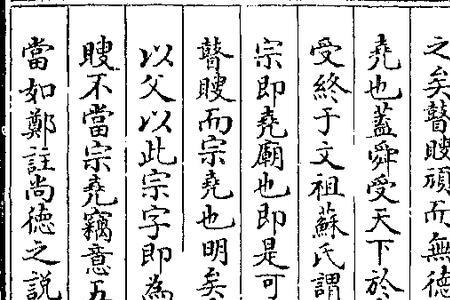 之矣瞽瞍頑而無德
堯也蓋舜受天下於
受終于文祖蘇氏謂
宗即堯廟也即是可
瞽瞍而宗堯也明矣
以父以此宗字即為
瞍不當宗堯竊意五
當如鄭註尚德之説